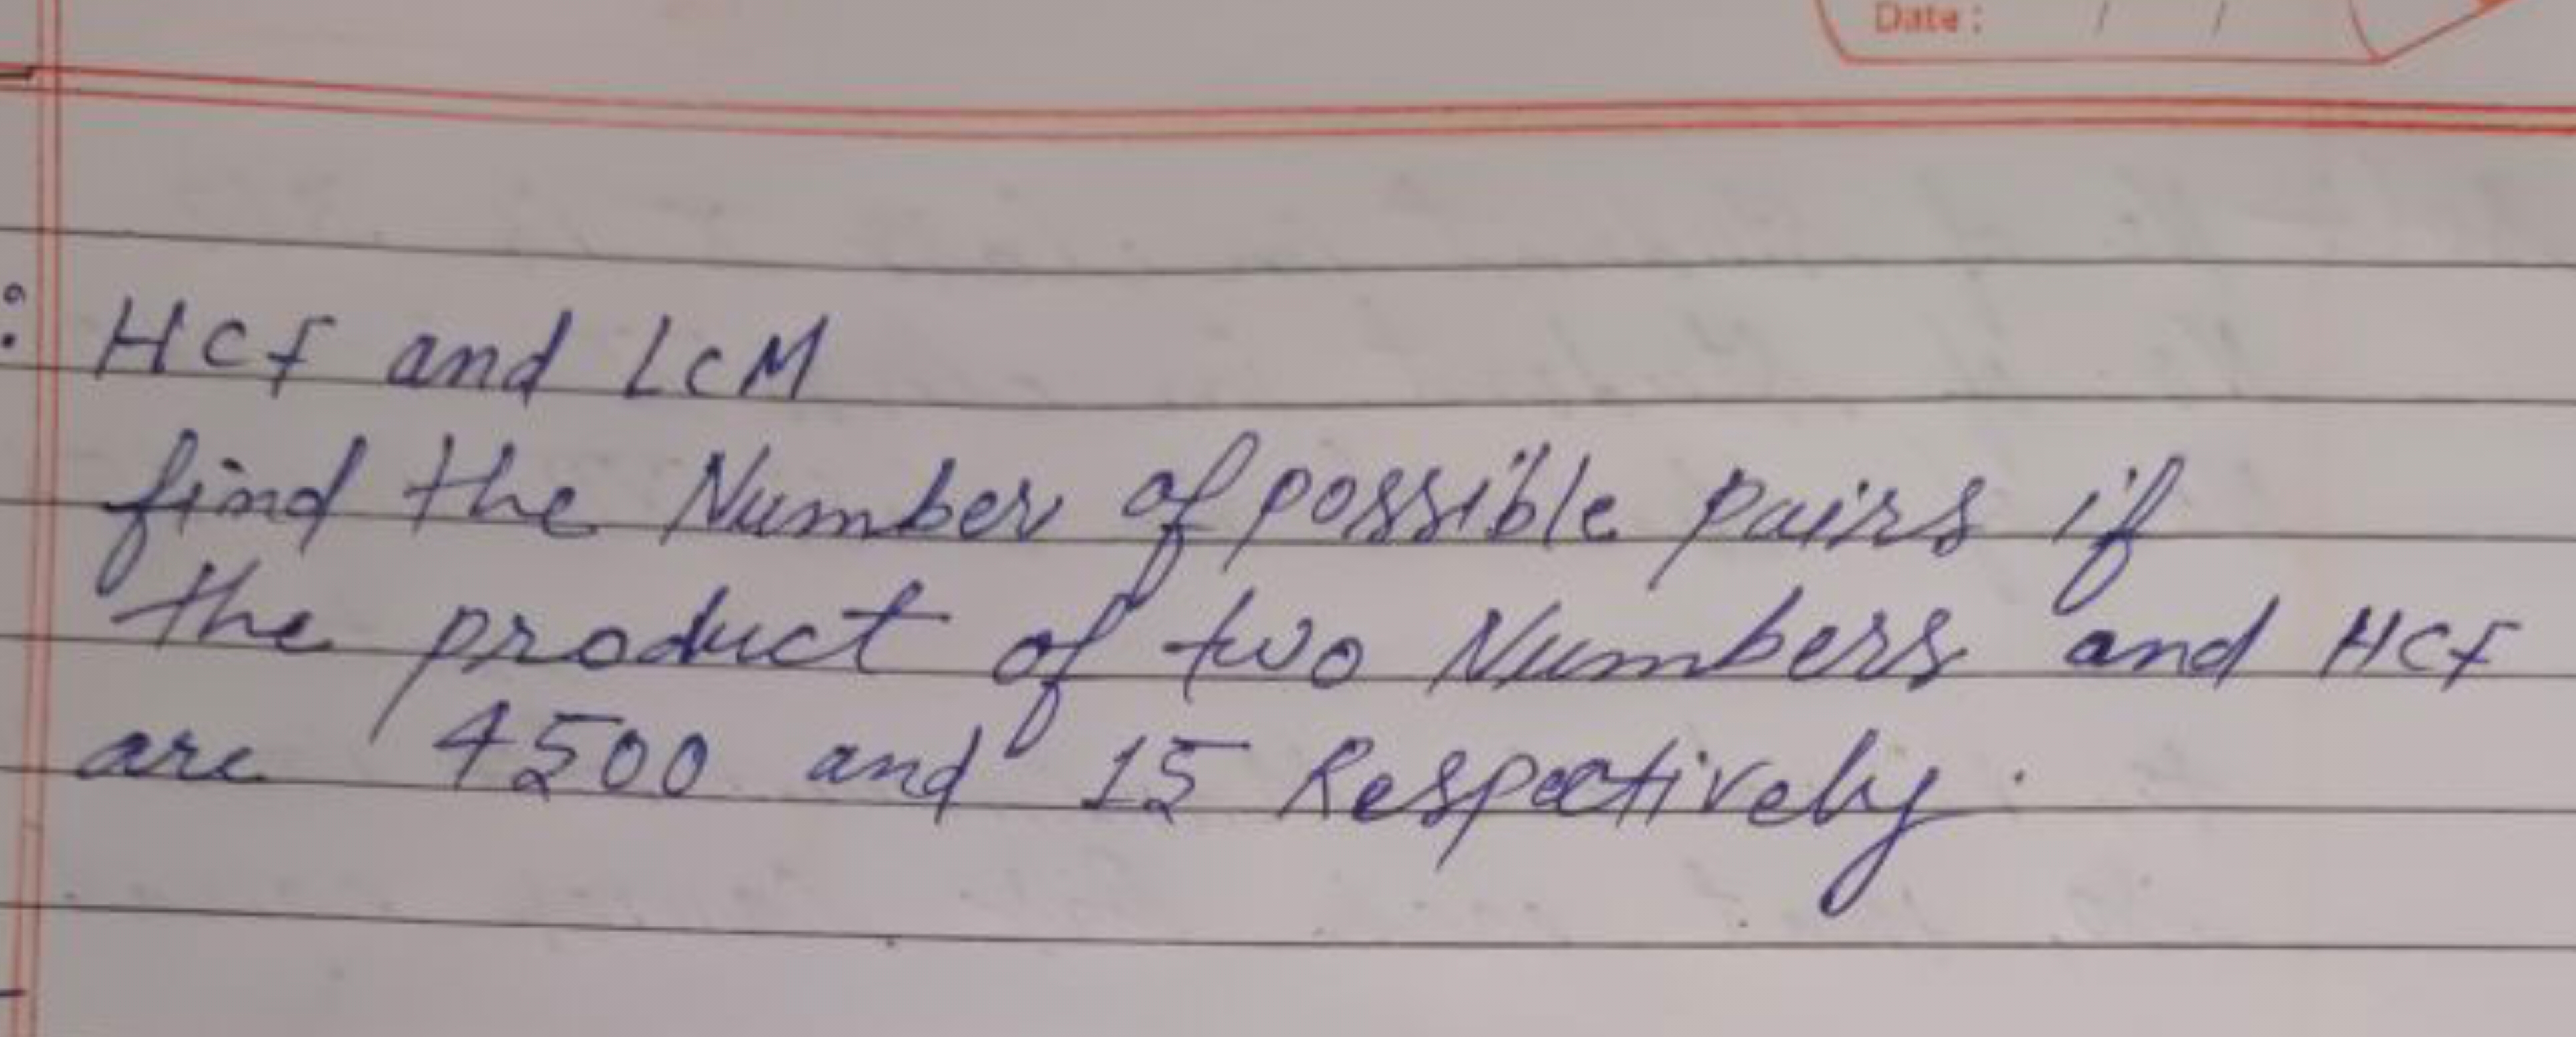 Date: / /
: HCF and LCM
find the Number of possible pairs if
the product of two Numbers and HCF
are 4500 and 15 Respectively.